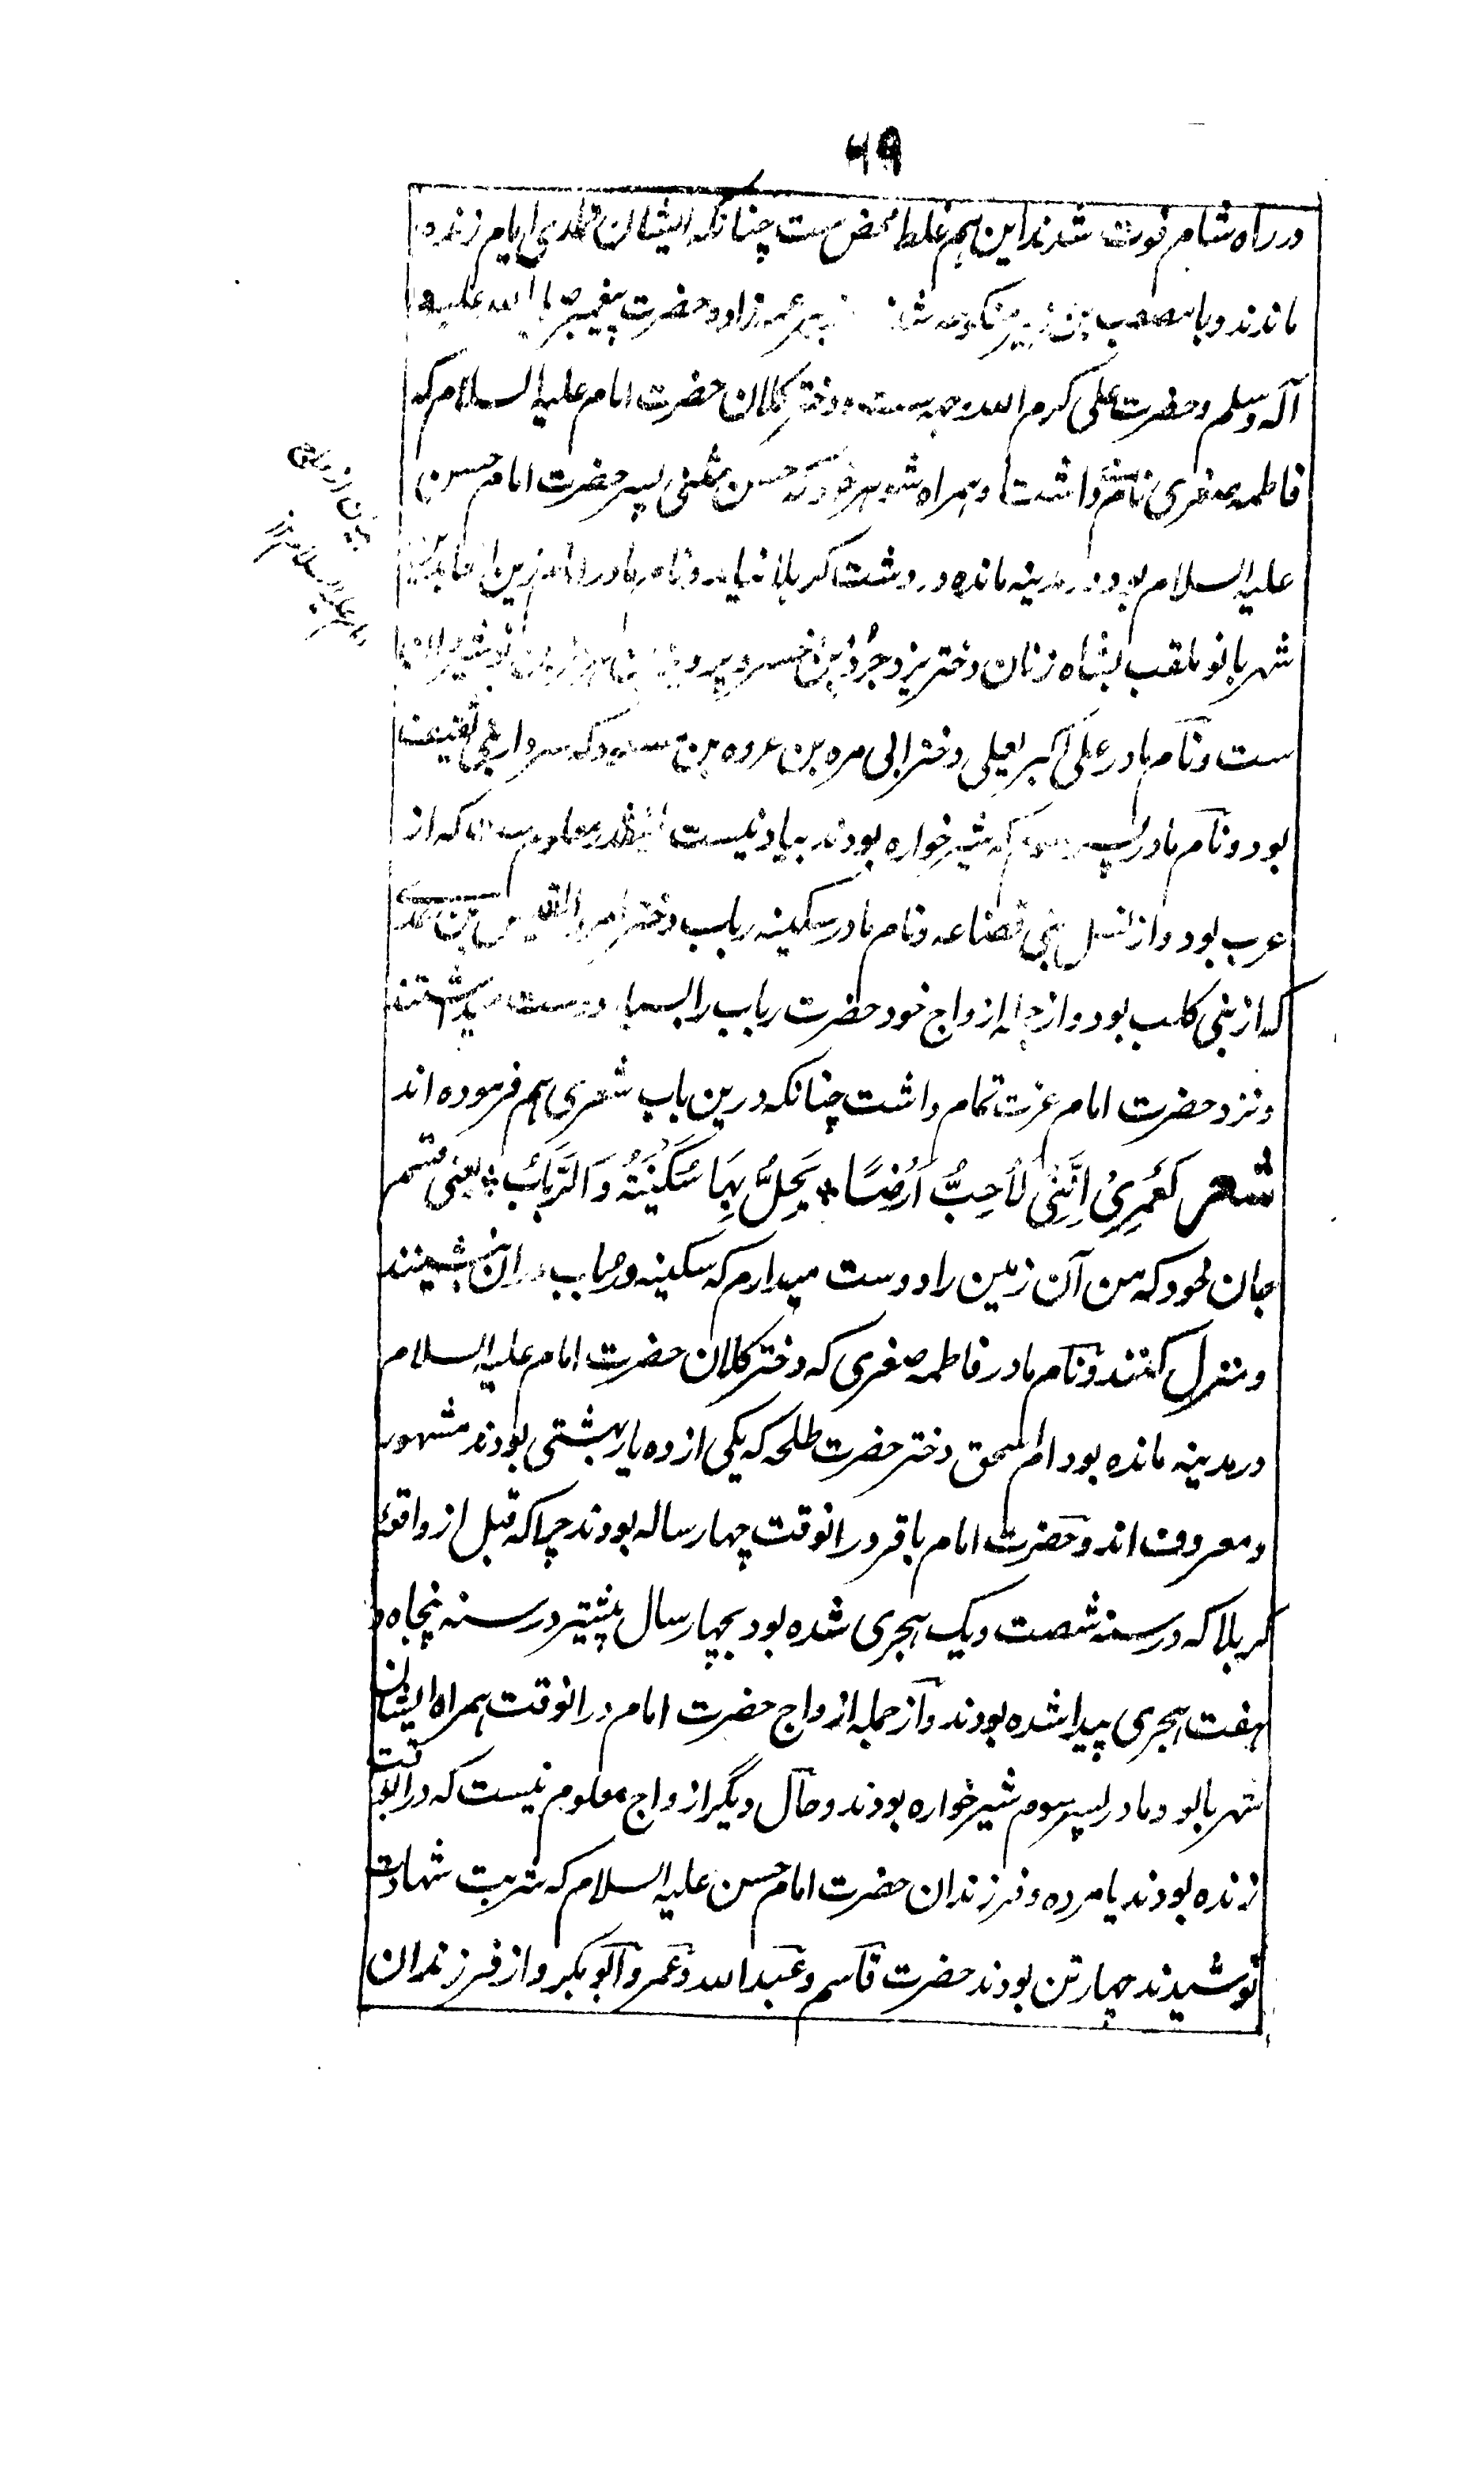 ۶۹
در راه شام فوت شدند این هم غلط محض ست چنانکه ایشان تا مدی ایام زنده
ماندند و با مصعب بن زبیر منکوحه شدند زبیر عمه زاده حضرت پیغمبر صلی الله علیه و
آله وسلم و حضرت علی کرم الله وجهه ست و دختر کلان حضرت امام علیه السلام که
فاطمه صغری نام داشت و همراه شوهر خود که حسن مثنی پسر حضرت امام حسن
علیه السلام بود در مدینه مانده در دشت کربلا نیامد و نام مادر امام زین العابدین
شهربانو ملقب بشاه زنان دختر یزدجرد بن خسرو پرویز بن هرمز بن نوشیروان
ست و نام مادر علی اکبر لیلی دختر ابی مره بن عروه بن مسعود که سردار بنی ثقیف
بود و نام مادر پسر سوم که شیرخواره بودند بیاد نیست اینقدر معلوم ست که از
عرب بود و از نسل بنی قضاعه و نام مادر سکینه رباب دختر امرء القیس بن عدی
که از بنی کلب بود و از جمله ازواج خود حضرت رباب را بسیار دوست میداشتند
و نزد حضرت امام عزت تمام داشت چنانکه درین باب شعری هم فرموده اند
شعر لَعَمرِیْ اِنَّنِیْ لَاُحِبُّ اَرْضًا * یَحِلُّ بِهَا سُکَیْنَةُ وَالرَّبَابُ * یعنی قسم
جان خود که من آن زمین را دوست میدارم که سکینه و رباب دران بنشینند
و منزل کنند و نام مادر فاطمه صغری که دختر کلان حضرت امام علیه السلام
در مدینه مانده بود ام اسحق دختر حضرت طلحه که یکی از ده یار بهشتی بودند مشهور
و معروف اند و حضرت امام باقر در انوقت چهار ساله بودند چرا که قبل از واقعه
کربلا که در سنه شصت و یک هجری شده بود بچهار سال پیشتر در سنه پنجاه و
هفت هجری پیدا شده بودند و از جمله ازواج حضرت امام در انوقت همراه ایشان
شهربانو و مادر پسر سوم شیرخواره بودند و حال دیگر ازواج معلوم نیست که در انوقت
زنده بودند یا مرده و فرزندان حضرت امام حسن علیه السلام که شربت شهادت
نوشیدند چهار تن بودند حضرت قاسم و عبدالله و عمر و ابوبکر و از فرزندان
بیان ازواج
امام علیه السلام